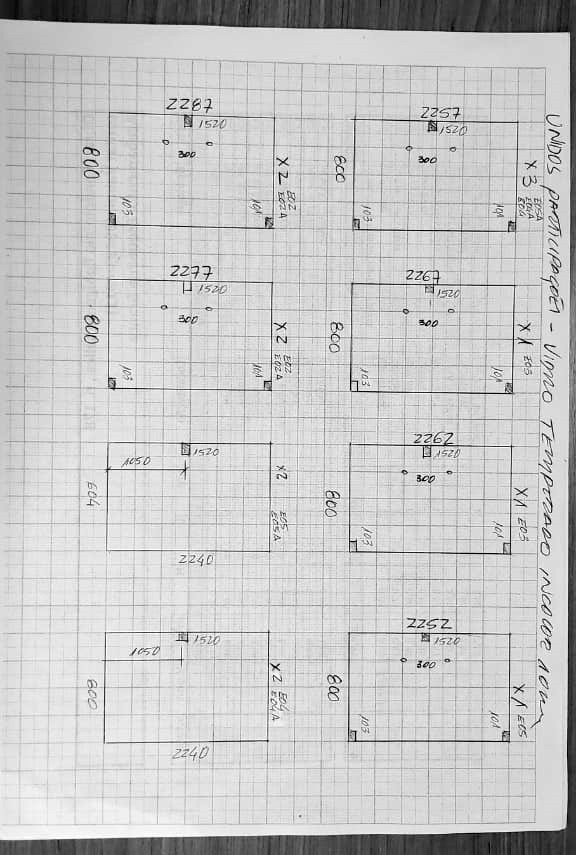 UNIDOS PARTICIPAÇÕES - VIDRO TEMPERADO INCOLOR 10mm
2287
1520
300
800
103
101
X2 E02
E02A
2257
1520
300
800
103
101
X3 E05A
E04A
E04
2277
1520
300
800
103
101
X2 E02
E02A
2267
1520
300
800
103
101
X1 E03
1520
1050
604
X2 E05
E05A
2240
2262
1520
300
800
103
101
X1 E03
1520
1050
800
X2 E04
E04A
2240
2252
1520
300
800
103
101
X1 E05